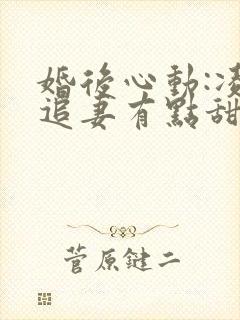 婚後心動:凌
追妻有點甜
菅原鍵二